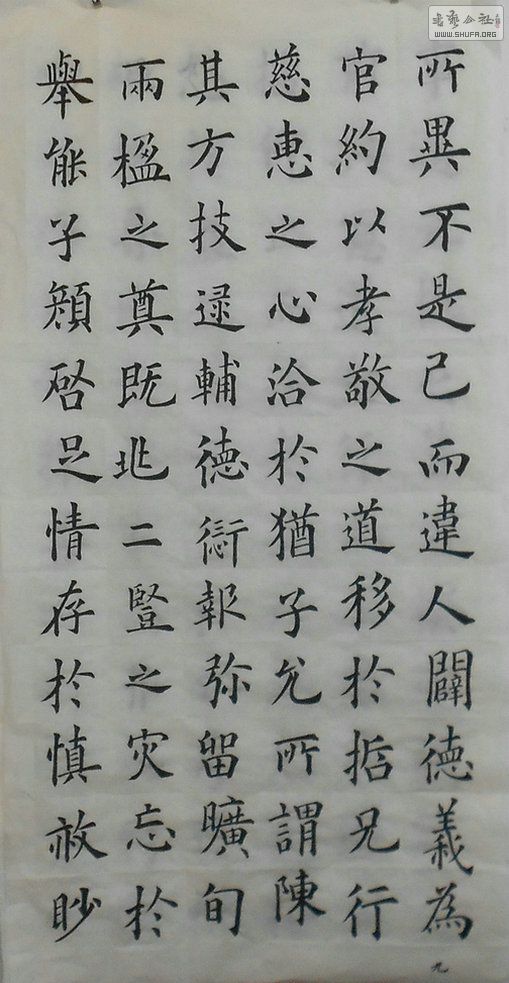 書藝公社
WWW.SHUFA.ORG
所異不是己而違人闢德義為
官約以孝敬之道移於哲兄行
慈惠之心洽於猶子允所謂陳
其方技逯輔德愆報弥留曠旬
兩楹之奠既兆二豎之灾忘於
舉能子顔啓足情存於慎赦眇
九